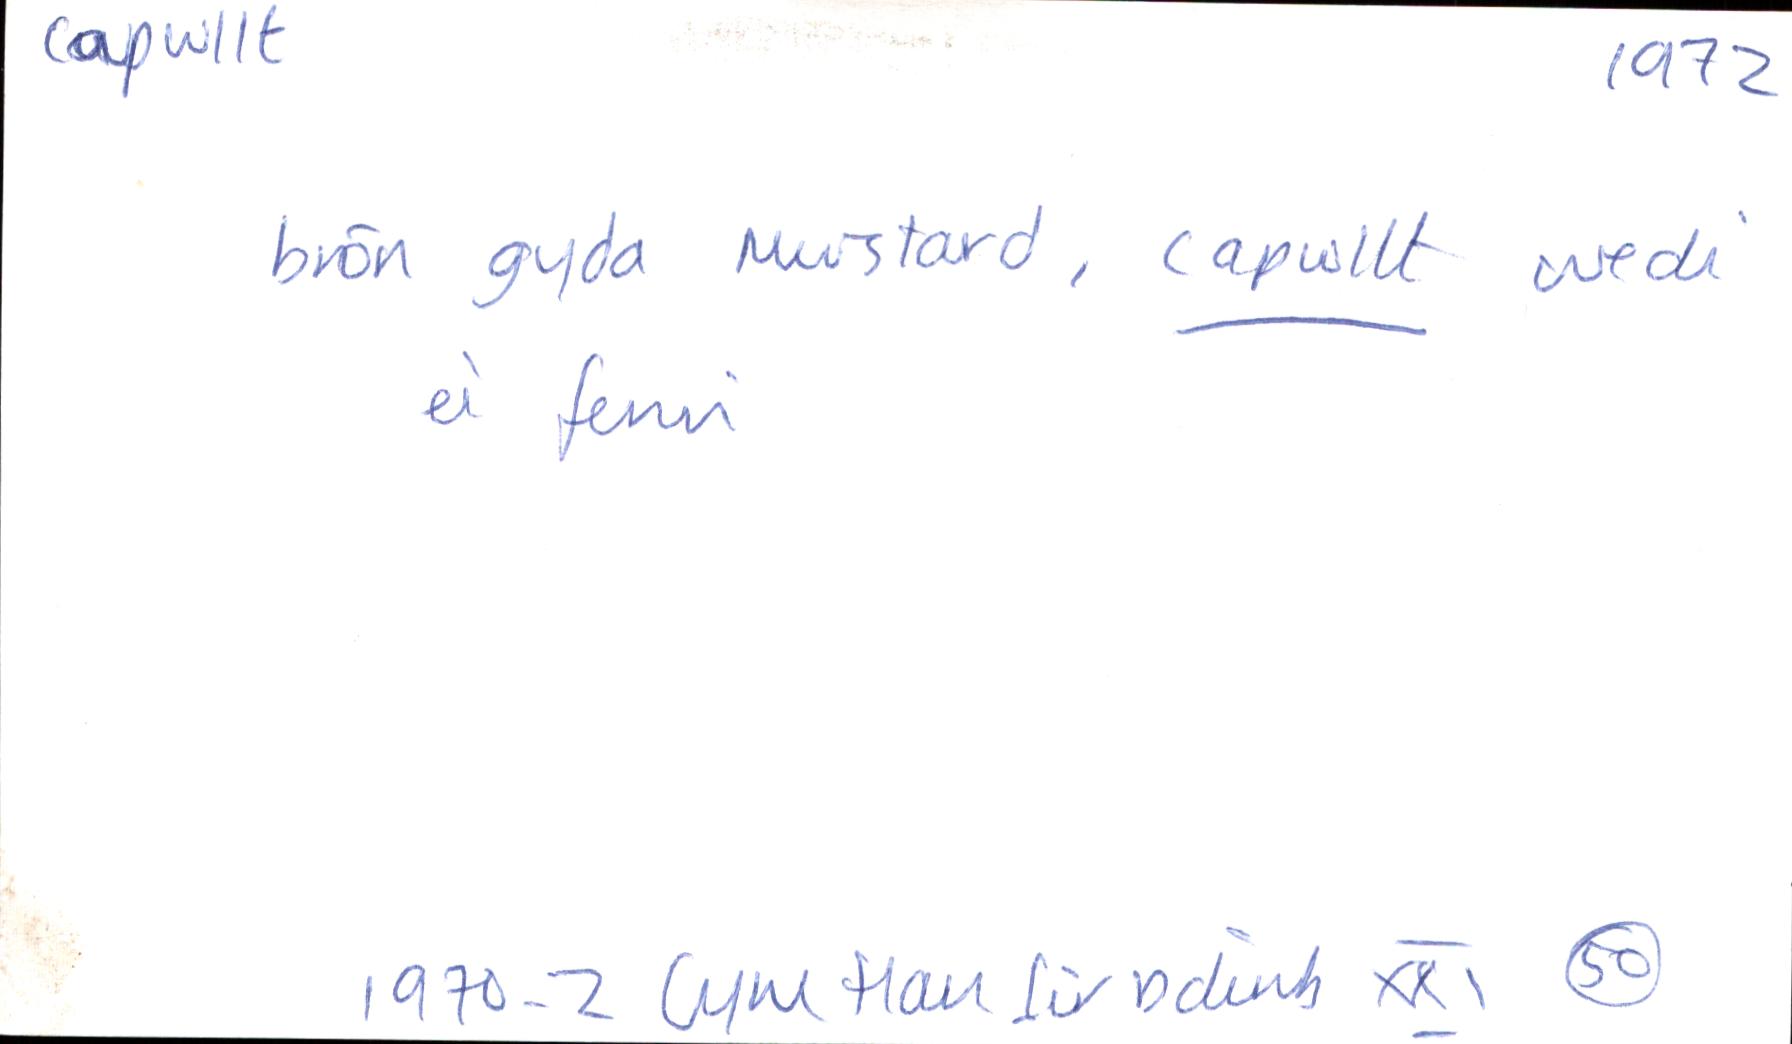 capwllt
1972
brôn gyda mwstard, capwllt wedi
ei ferwi
1970-2 Cym Han Sir Ddinb XXI 50